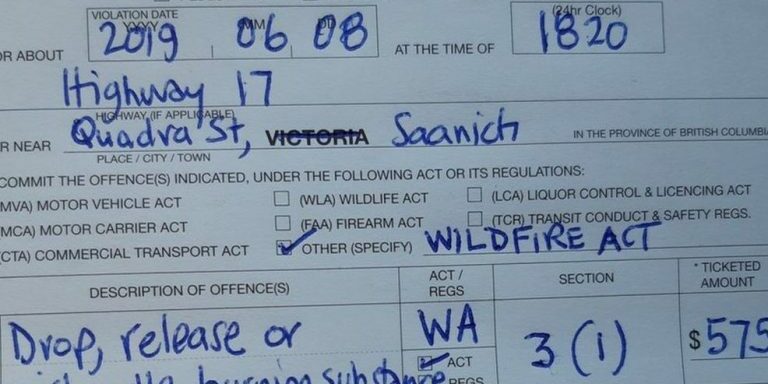 VIOLATION DATE
YYYY MM DD
(24hr Clock)
OR ABOUT 2019 06 08 AT THE TIME OF 1820
Highway 17
HIGHWAY (IF APPLICABLE)
R NEAR Quadra St, VICTORIA Saanich IN THE PROVINCE OF BRITISH COLUMBIA
PLACE / CITY / TOWN
COMMIT THE OFFENCE(S) INDICATED, UNDER THE FOLLOWING ACT OR ITS REGULATIONS:
(MVA) MOTOR VEHICLE ACT (WLA) WILDLIFE ACT (LCA) LIQUOR CONTROL & LICENCING ACT
(MCA) MOTOR CARRIER ACT (FAA) FIREARM ACT (TCR) TRANSIT CONDUCT & SAFETY REGS.
(CTA) COMMERCIAL TRANSPORT ACT OTHER (SPECIFY) WILDFIRE ACT
DESCRIPTION OF OFFENCE(S) ACT / REGS SECTION * TICKETED AMOUNT
Drop, release or WA 3 (1) $575
ACT
burning substance REGS